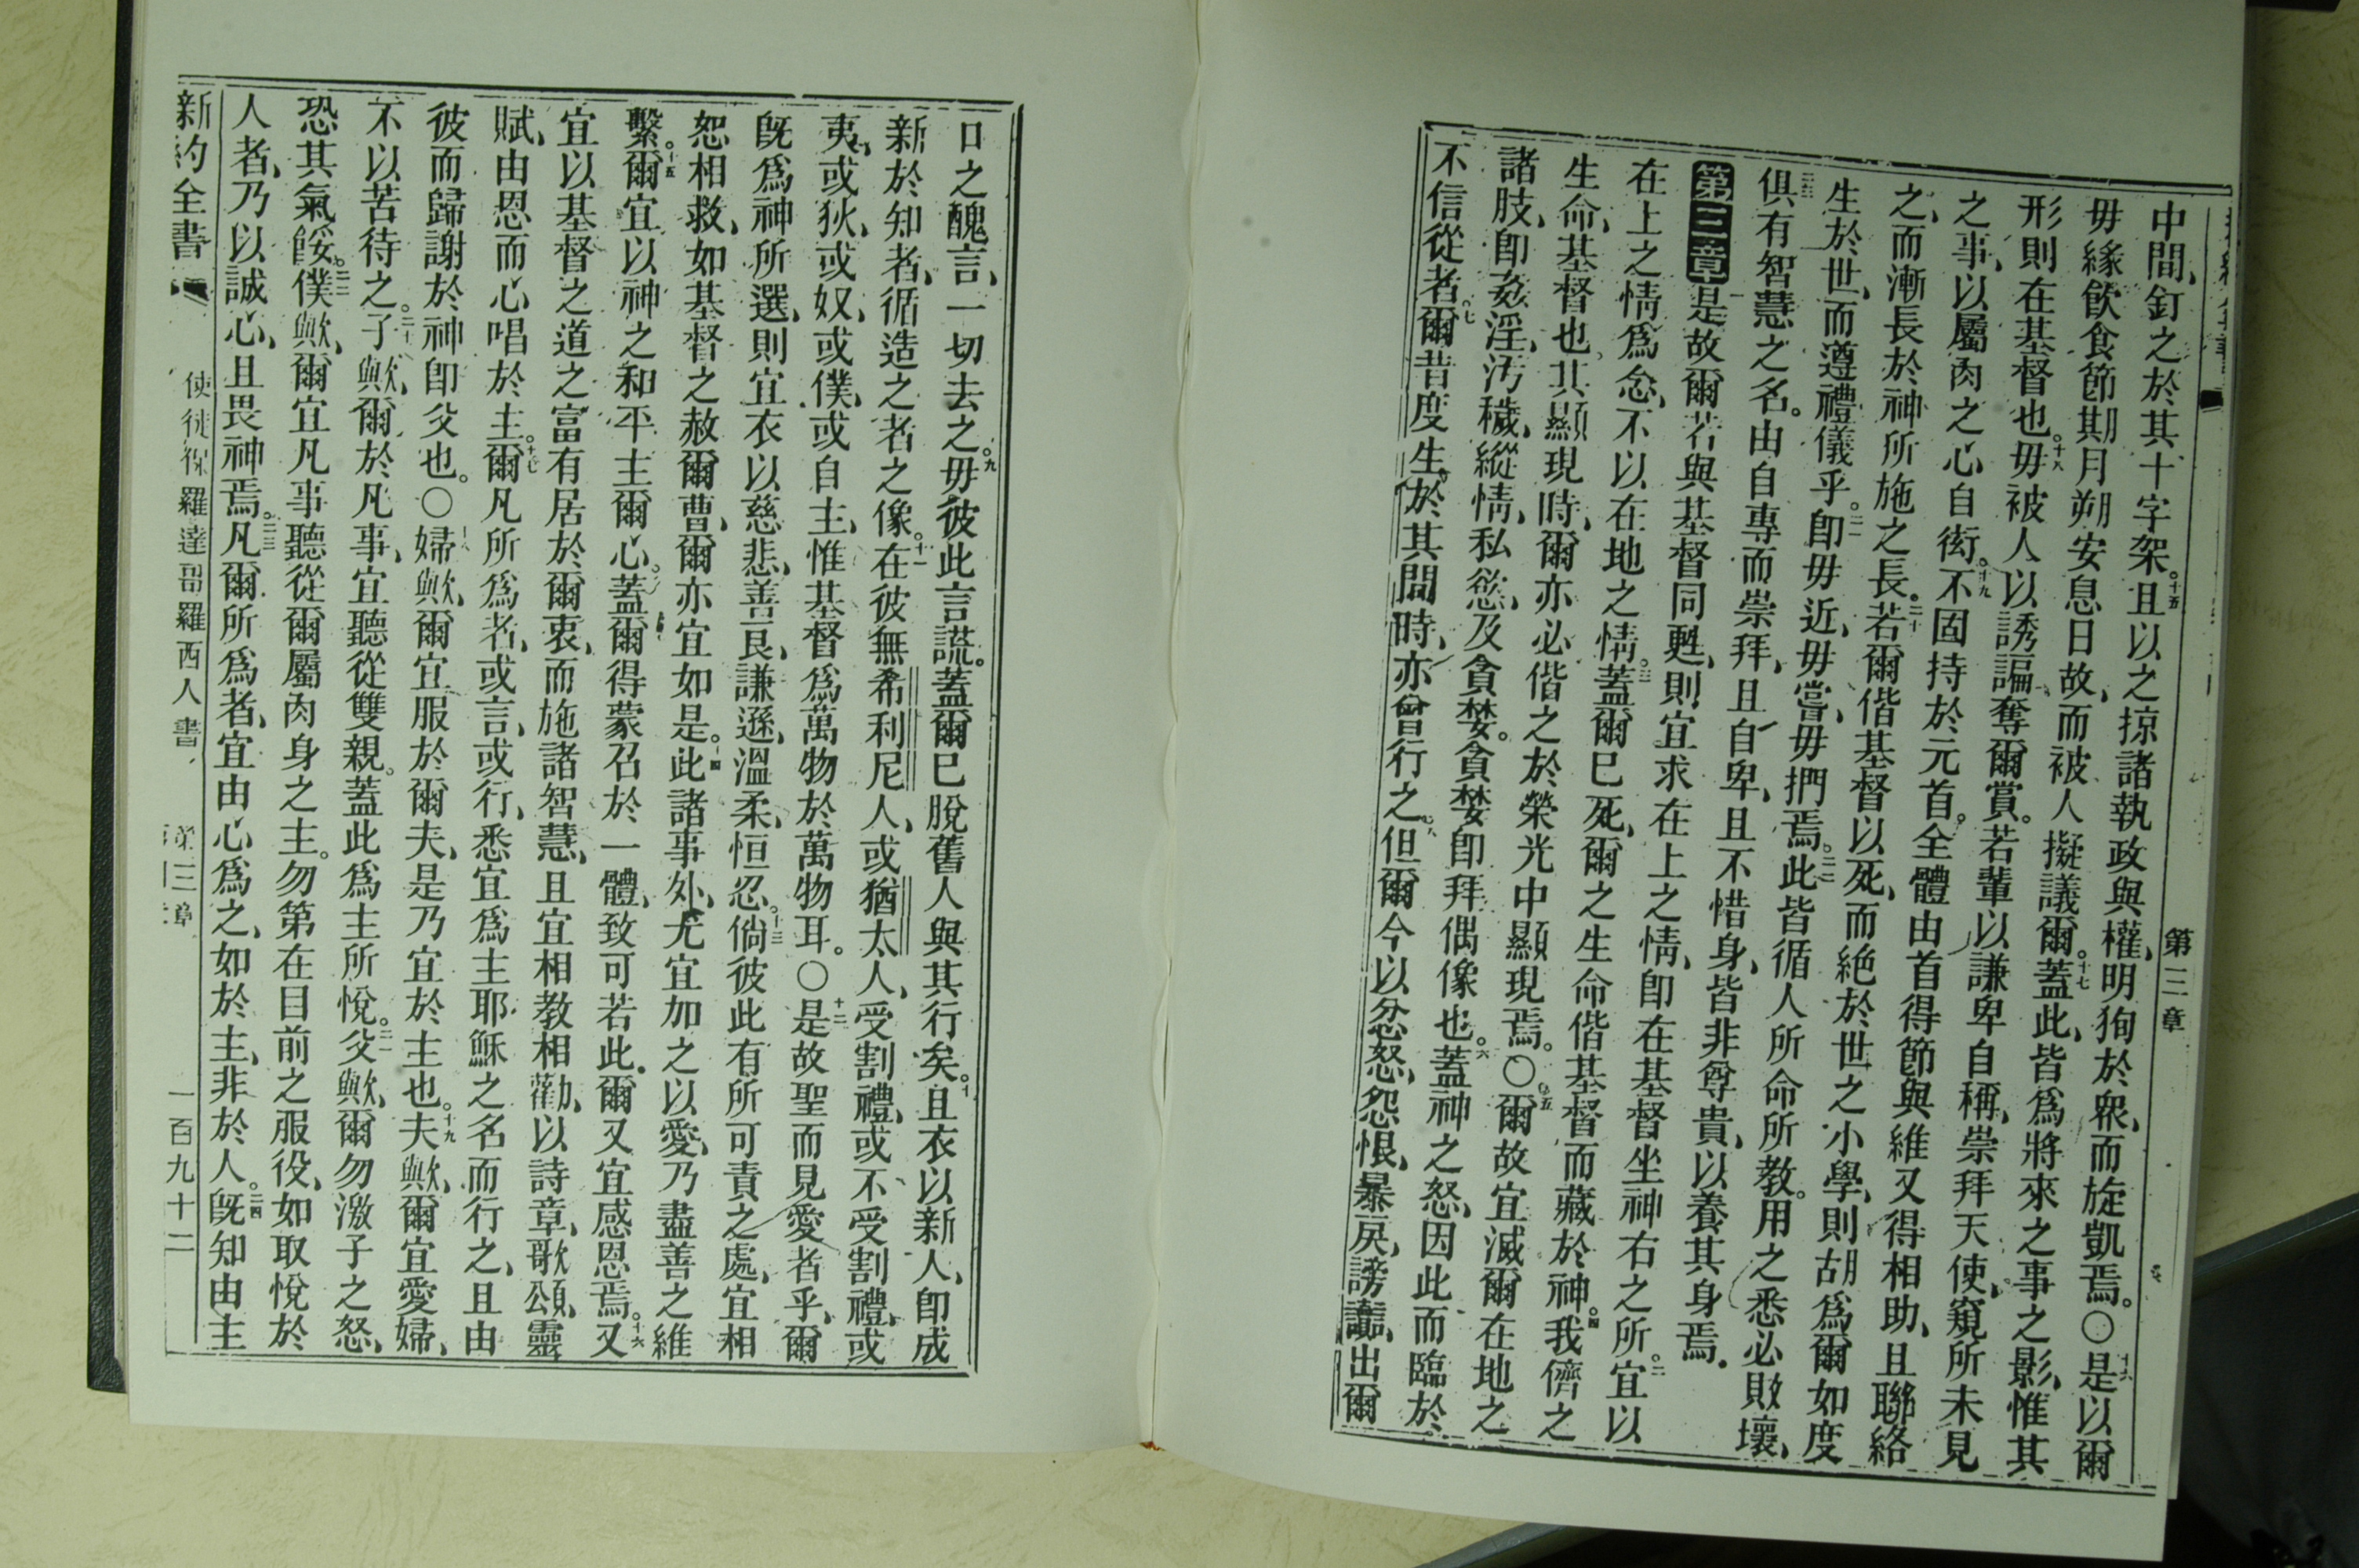 第三章
中間、釘之於其十字架。十五且以之掠諸執政與權、明狥於衆、而旋凱焉。〇十六是以爾
毋緣飲食節期月朔安息日故、而被人擬議爾。十七蓋此、皆爲將來之事之影、惟其
形則在基督也。十八毋被人以誘謳奪爾賞。若輩以謙卑自稱、崇拜天使、窺所未見
之事、以屬肉之心自衒。十九不固持於元首。全體由首得節與維又得相助、且聯絡
之、而漸長於神所施之長。二十若爾偕基督以死、而絶於世之小學、則胡爲爾如度
生於世、而遵禮儀乎。二一卽毋近、毋嘗、毋捫焉。二二此皆循人所命所教。用之悉必敗壞、
二三俱有智慧之名。由自專而崇拜、且自卑、且不惜身、皆非尊貴、以養其身焉。
第三章 一是故爾若與基督同甦、則宜求在上之情、卽在基督坐神右之所。二宜以
在上之情爲念、不以在地之情。三蓋爾巳死、爾之生命偕基督而藏於神。四我儕之
生命、基督也。其顯現時、爾亦必偕之於榮光中顯現焉。〇五爾故宜滅爾在地之
諸肢、卽姦淫、汚穢、縱情、私慾、及貪婪。貪婪卽拜偶像也。六蓋神之怒、因此而臨於
不信從者。七爾昔度生於其間時、亦曾行之。八但爾今以忿怒、怨恨、暴戾、謗讟、出爾
口之醜言、一切去之。九毋彼此言謊。蓋爾巳脫舊人與其行矣。十且衣以新人、卽成
新於知者、循造之者之像。十一在彼無希利尼人、或猶太人、受割禮、或不受割禮、或
夷、或狄、或奴、或僕、或自主、惟基督爲萬物於萬物耳。〇十二是故聖而見愛者乎、爾
旣爲神所選、則宜衣以慈悲、善良、謙遜、溫柔、恒忍。十三倘彼此有所可責之處、宜相
恕相救、如基督之赦爾曹、爾亦宜如是。十四此諸事外、尤宜加之以愛、乃盡善之維
繫。十五爾宜以神之和平主爾心。蓋爾得蒙召於一體、致可若此。爾又宜感恩焉。十六又
宜以基督之道之富有居於爾衷、而施諸智慧、且宜相教相勸、以詩章、歌頌、靈
賦、由恩而心唱於主。十七爾凡所爲者、或言、或行、悉宜爲主耶穌之名而行之、且由
彼而歸謝於神卽父也。〇十八婦歟、爾宜服於爾夫、是乃宜於主也。十九夫歟、爾宜愛婦、
不以苦待之。二十子歟、爾於凡事、宜聽從雙親。蓋此爲主所悅。二一父歟、爾勿激子之怒、
恐其氣餒。二二僕歟、爾宜凡事聽從爾屬肉身之主。勿第在目前之服役、如取悅於
人者、乃以誠心、且畏神焉。二三凡爾所爲者、宜由心爲之、如於主、非於人。二四旣知由主
新約全書 使徒保羅達哥羅西人書 第三章 一百九十二